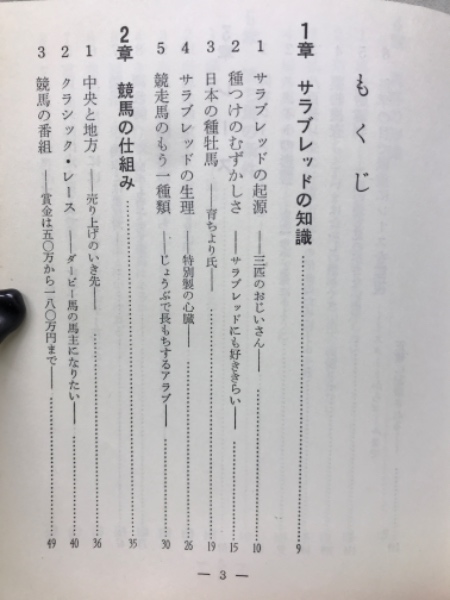 もくじ
1章 サラブレッドの知識…………9
1 サラブレッドの起源──三匹のおじいさん──…………10
2 種つけのむずかしさ──サラブレッドにも好ききらい──…………15
3 日本の種牡馬──育ちより氏──…………19
4 サラブレッドの生理──特別製の心臓──…………26
5 競走馬のもう一種類──じょうぶで長もちするアラブ──…………30
2章 競馬の仕組み…………35
1 中央と地方──売り上げのいき先──…………36
2 クラシック・レース──ダービー馬の馬主になりたい──…………40
3 競馬の番組──賞金は五〇万から一八〇万円まで──…………49
— 3 —